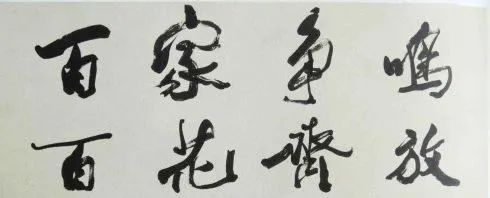 百家争鸣
百花齊放